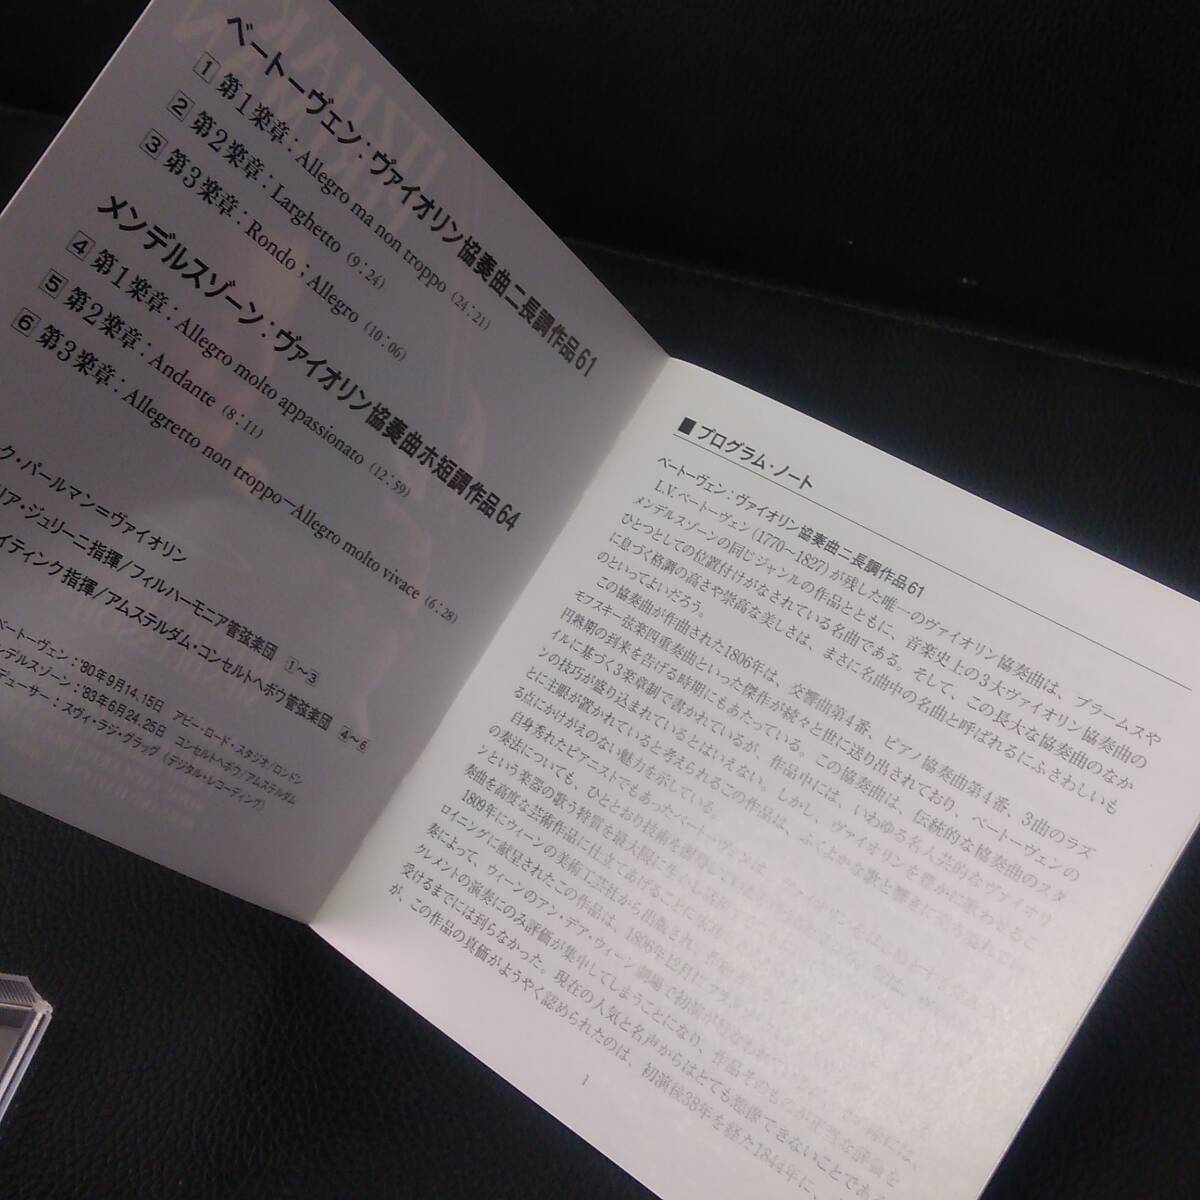 ベートーヴェン：ヴァイオリン協奏曲ニ長調作品61
1 第1楽章：Allegro ma non troppo (24：21)
2 第2楽章：Larghetto (9：24)
3 第3楽章：Rondo；Allegro (10：06)
メンデルスゾーン：ヴァイオリン協奏曲ホ短調作品64
4 第1楽章：Allegro molto appassionato (12：59)
5 第2楽章：Andante (8：11)
6 第3楽章：Allegretto non troppo—Allegro molto vivace (6：28)
ク・パールマン＝ヴァイオリン
リア・ジュリーニ指揮/フィルハーモニア管弦楽団 1～3
イティンク指揮/アムステルダム・コンセルトヘボウ管弦楽団 4～6
ベートーヴェン：'80年9月14.15日 アビー・ロード・スタジオ/ロンドン
ンデルスゾーン：'83年6月24.25日 コンセルトヘボウ/アムステルダム
デューサー：スヴィ・ラジ・グラッグ（デジタル・レコーディング）
■プログラム・ノート
ベートーヴェン：ヴァイオリン協奏曲ニ長調作品61
L.V.ベートーヴェン(1770～1827)が残した唯一のヴァイオリン協奏曲は、ブラームスや
メンデルスゾーンの同じジャンルの作品とともに、音楽史上の3大ヴァイオリン協奏曲の
ひとつとしての位置付けがなされている名曲である。そして、この長大な協奏曲のなか
に息づく格調の高さや崇高な美しさは、まさに名曲中の名曲と呼ばれるにふさわしいも
のといってよいだろう。
この協奏曲が作曲された1806年は、交響曲第4番、ピアノ協奏曲第4番、3曲のラズ
モフスキー弦楽四重奏曲といった傑作が続々と世に送り出されており、ベートーヴェンの
円熟期の到来を告げる時期にもあたっている。この協奏曲は、伝統的な協奏曲のスタ
イルに基づく3楽章制で書かれているが、作品中には、いわゆる名人芸的なヴァイオリ
ンの技巧が盛り込まれているとはいえない。しかし、ヴァイオリンを豊かに歌わせるこ
とに主眼が置かれていると考えられるこの作品は、ふくよかな歌と響きに
る点にかけがえのない魅力を示している。
自身秀れたピアニストでもあったベートーヴェンは、
の奏法についても、ひととおり技術を習得していた
ンという楽器の歌う特質を最大限に生かし
奏曲を高度な芸術作品に仕立てあげることに
1809年にウィーンの美術工芸社から出版され、
ロイニングに献呈されたこの作品は、1806年12月に
クレメントの演奏にのみ評価が集中してしまうことになり、作品そのものが正当な評価を
奏によって、ウィーンのアン・デア・ウィーン劇場で初演が
受けるまでには到らなかった。現在の人気と名声からはとても想像できないことである
が、この作品の真価がようやく認められたのは、初演後38年を経た1844年に、
1